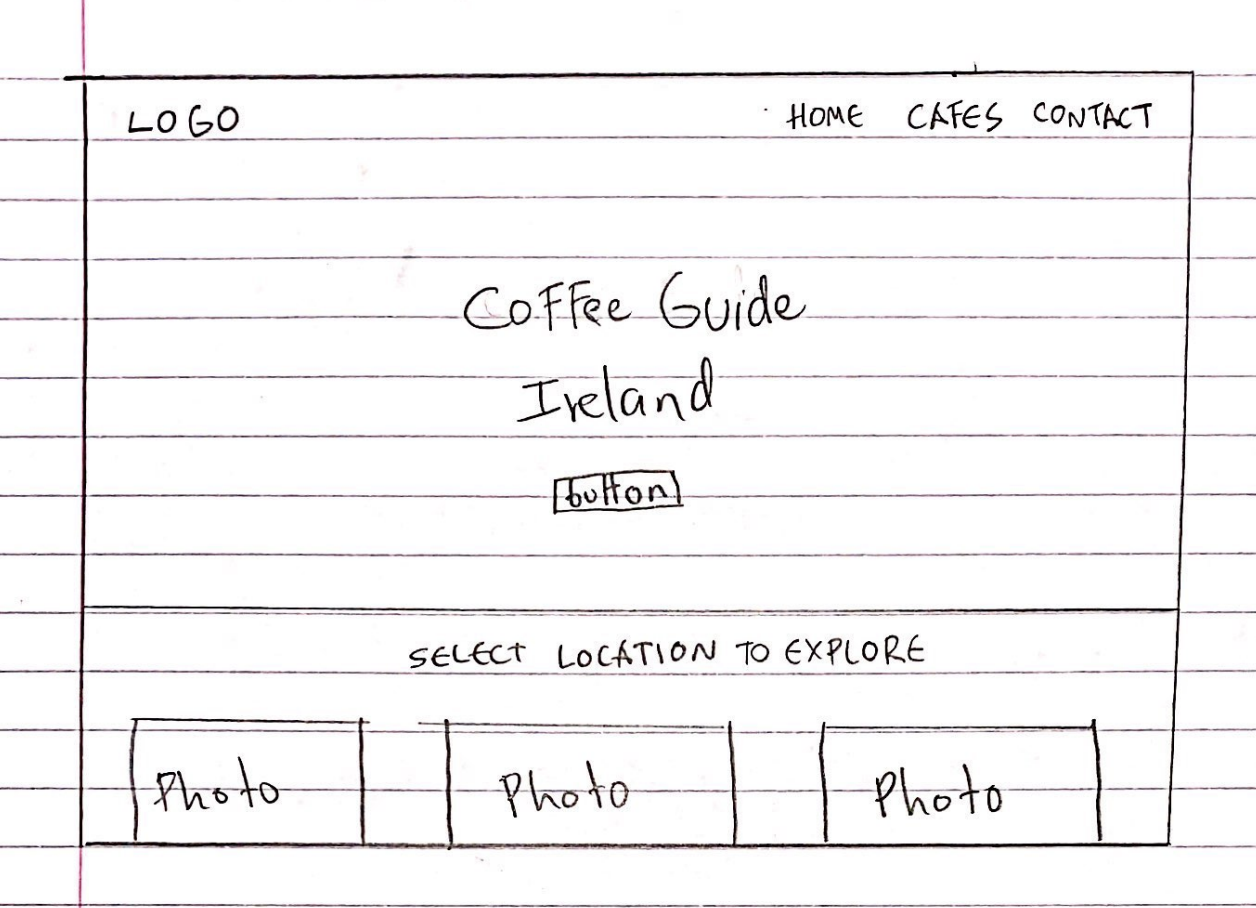 LOGO HOME CAFES CONTACT
Coffee Guide
Ireland
button
SELECT LOCATION TO EXPLORE
Photo Photo Photo